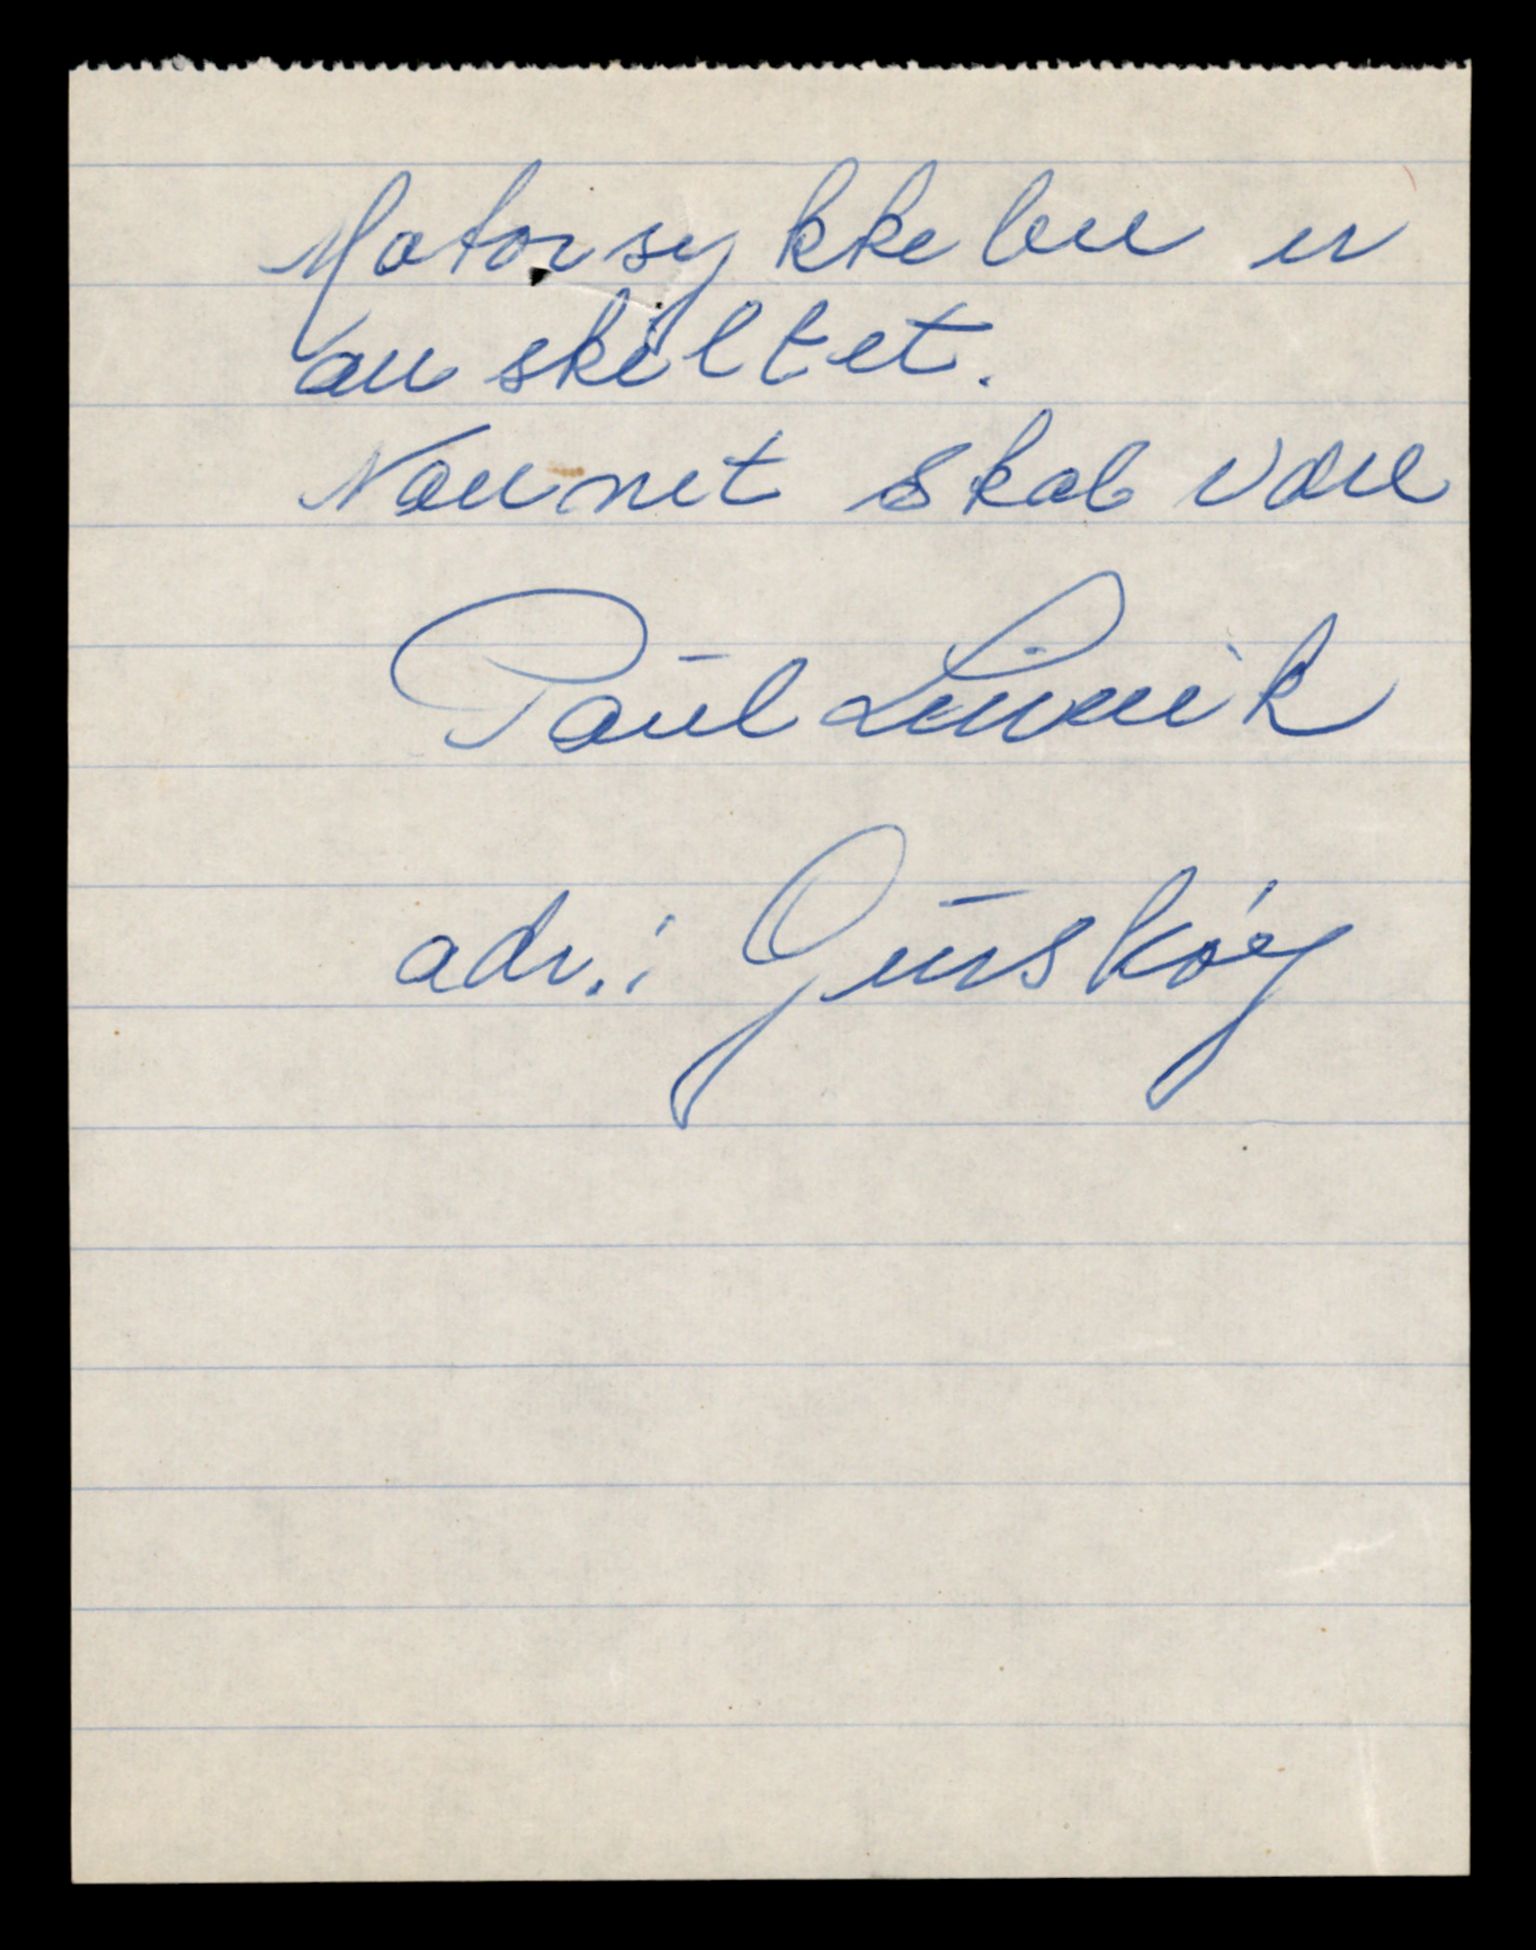 Motorsykkelen er
avskiltet.
Navnet skal være
Paul
adr.: Gurskøy